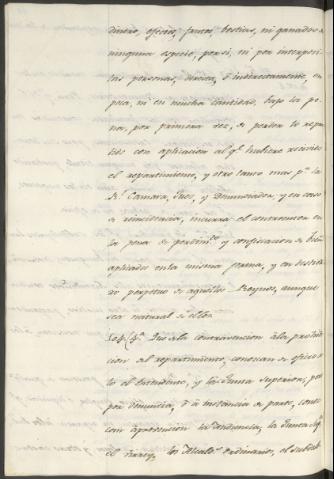 dinero, efectos, frutos, bestias, ni ganados de
ninguna especie, por si, ni por interposi-
tas personas, directa, ó indirectamente, en
poca, ni en mucha cantidad, bajo la pe-
na, por primera vez, de perder lo repar-
tido con aplicacion al qe. hubiere recivido
el repartimiento, y otro tanto mas pa. la
Rl. Camara, Juez, y Denunciador, y en caso
de reincidencia, incurra el contraventor en
la pena de perdimto. y confiscacion de bienes
aplicados en la misma forma, y en destier-
ro perpetuo de aquellos Reynos, aunque
sea natural de ellos.
4a. Que á la contravencion á la prohibi-
cion del repartimiento, conoscan de oficio so-
lo el Intendente, y la Junta Superior; pero
por denuncia, ó á instancia de parte, conos-
can á prevencion la Audiencia, la Junta Supr.
el Virrey, los Alcaldes ordinarios, el Subdele-